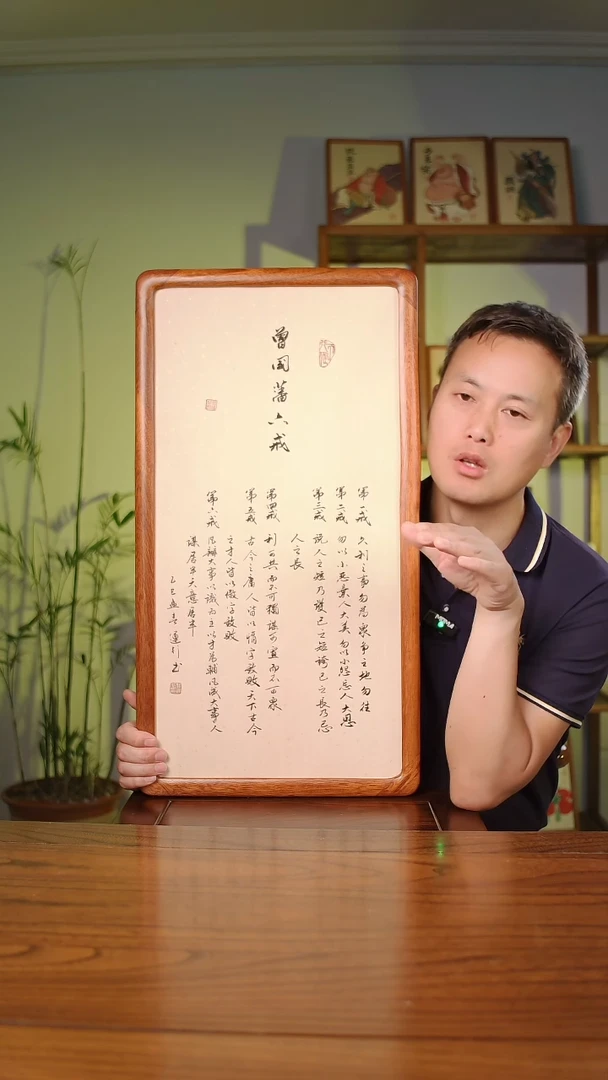 曾国藩六戒
第一戒 久利之事勿為衆爭之地勿往
第二戒 勿以小惡棄人大美勿以小怨忘人大恩
第三戒 說人之短乃護己之短誇己之長乃忌
人之長
第四戒 利可共而不可獨謀可寡而不可衆
第五戒 古今之庸人皆以惰字致敗天下古今
之才人皆以傲字致敗
第六戒 凡辦大事以識為主以才為輔凡成大事人
謀居半天意居半
乙巳孟春